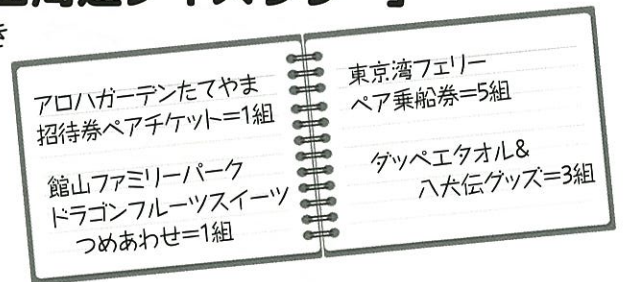 き
アロハガーデンたてやま
招待券ペアチケット=1組
館山ファミリーパーク
ドラゴンフルーツスイーツ
つめあわせ=1組
東京湾フェリー
ペア乗船券=5組
ダッペエタオル&
八犬伝グッズ=3組